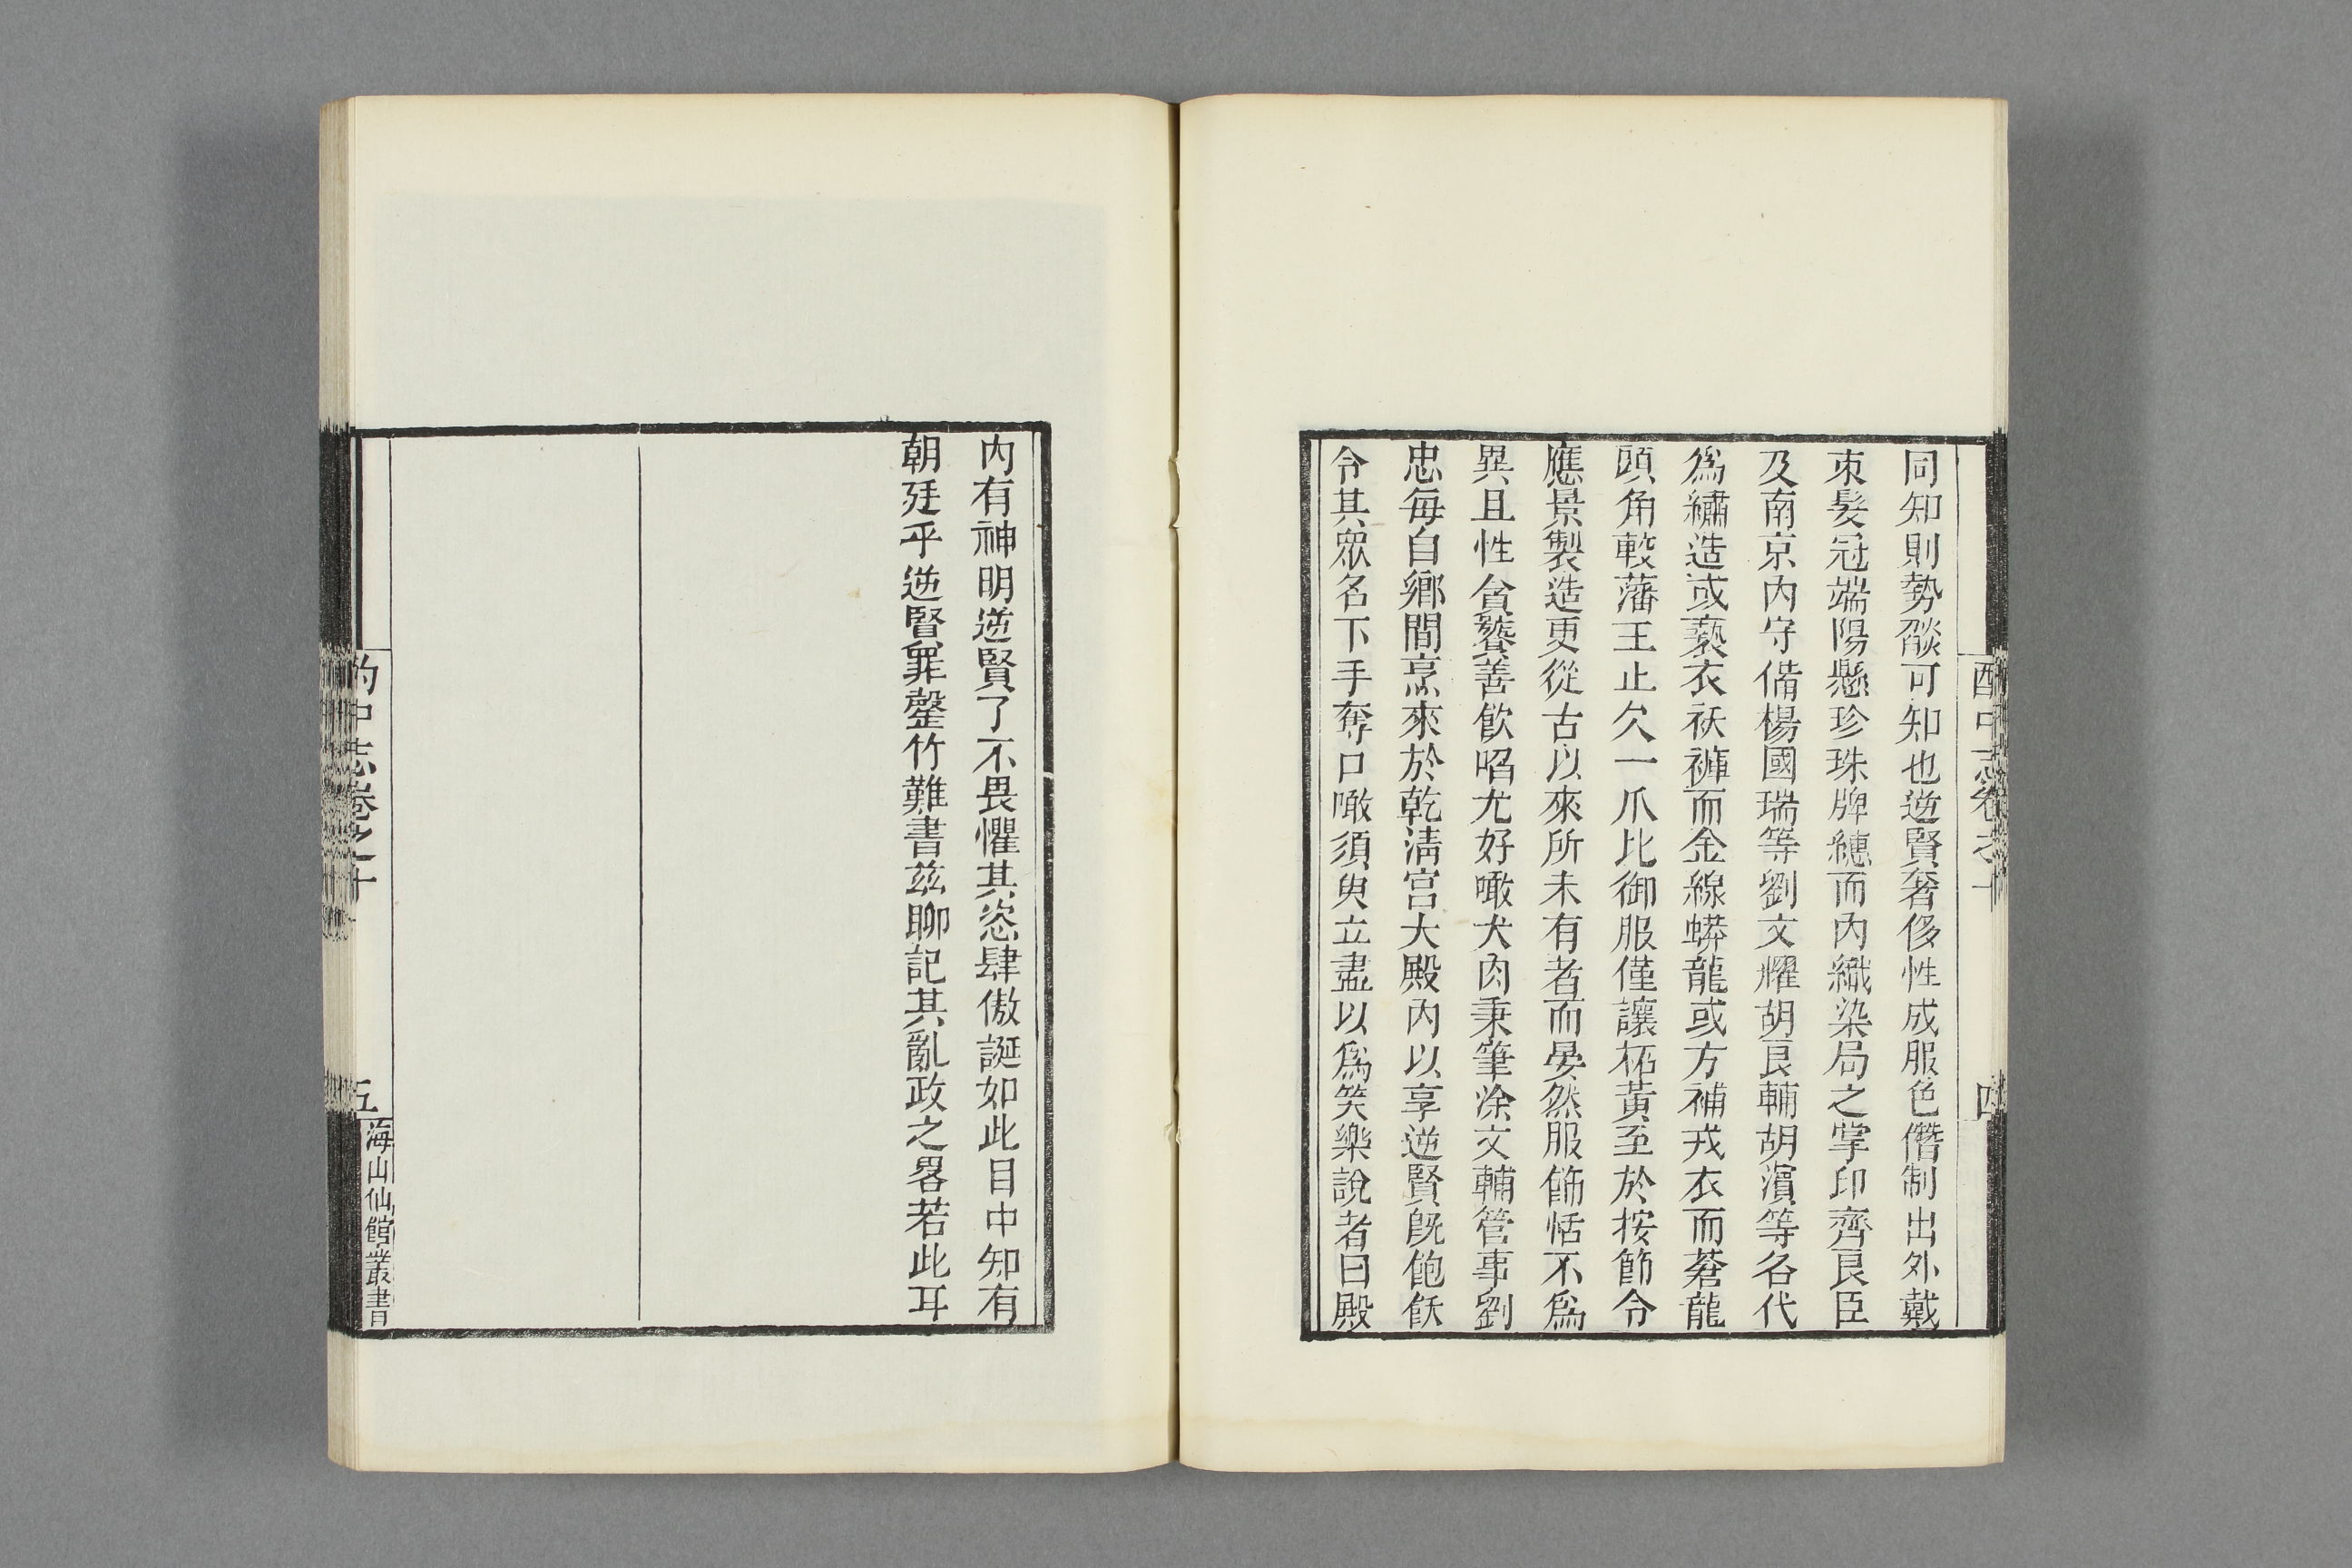 同知則勢燄可知也逆賢奢侈性成服色僭制出外戴
束髮冠端陽懸珍珠牌繐而內織染局之掌印齊良臣
及南京內守備楊國瑞等劉文燿胡良輔胡濵等各代
爲繡造或褻衣袄褲而金線蟒龍或方補戎衣而蒼龍
頭角較藩王止欠一爪比御服僅讓柘黃至於按節令
應景製造更從古以來所未有者而晏然服飾恬不爲
異且性貪饕善飲啗尤好噉犬肉秉筆涂文輔管事劉
忠每自鄉間烹來於乾清宮大殿內以享逆賢旣飽飫
令其眾名下手奪口噉須臾立盡以爲笑樂說者曰殿
酌中志卷之十
四
內有神明逆賢了不畏懼其恣肆傲誕如此目中知有
朝廷乎逆賢罪罄竹難書茲聊記其亂政之畧若此耳
酌中志卷之十
五
海山仙館叢書